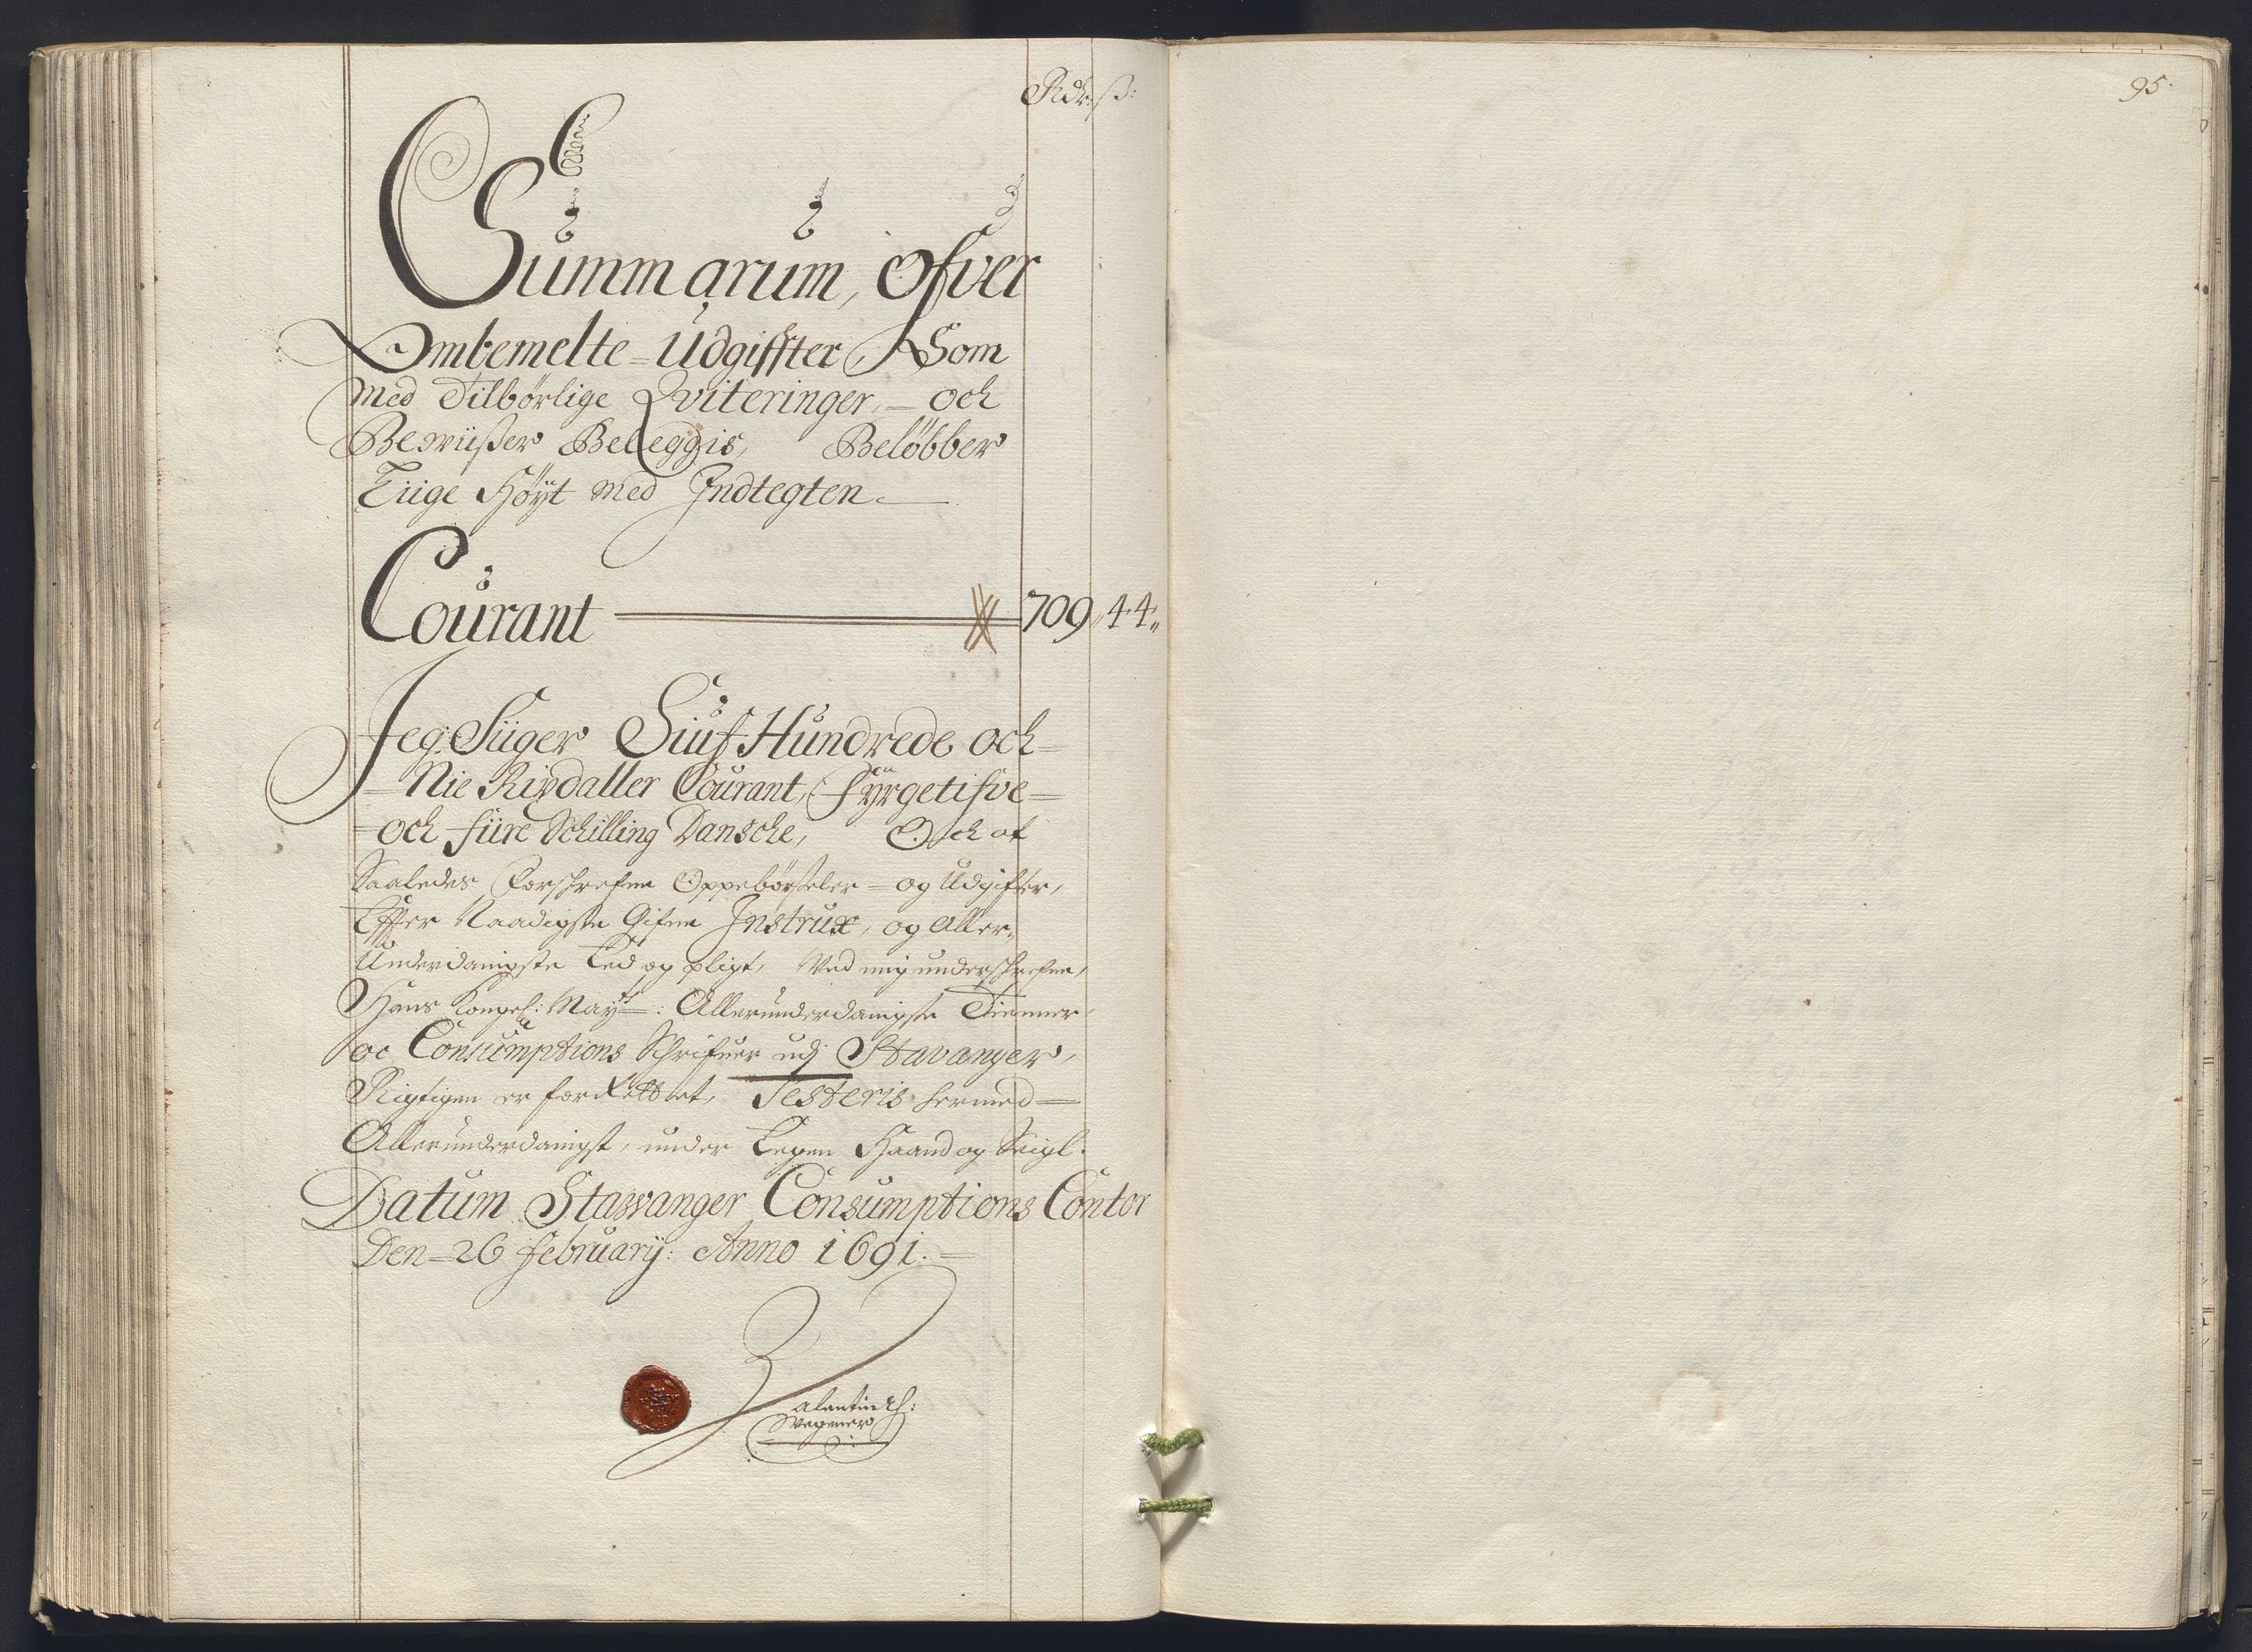 Rdr: ß:
Summarum, Ofver
Ombemelte = Udgiffter, Som
Med Tilbørlige Qviteringer, = och
Bewiißer Beleggis, Beløbber
Liige Høÿt med Indtegten
Courant 709,, 44,,
Jeg Siiger Siuf Hundrede och =
= Nie Rixdaller Courant, Fÿrgetifve =
= och fiire Schilling Dansche, Och at
Saaledes Forschrefne Oppebørseler = og Udgifter,
Effter Naadigste Gifne Instrux, og Aller=
Underdanigste Eed og pligt, Ved mig underschrefne,
Hans Kongel: Maytt: Allerunderdanigste Tienner
oc Consumptions Schrifuer udj Stavanger,
Rigtigen er forrettet, Testeris hermed =
Allerunderdanigst, under Eegen Haand og Seigl.
Datum Stawanger Consumptions Contor
Den = 26 Februarij: Anno 1691. =
Valentin Ch:
Wegener
95.